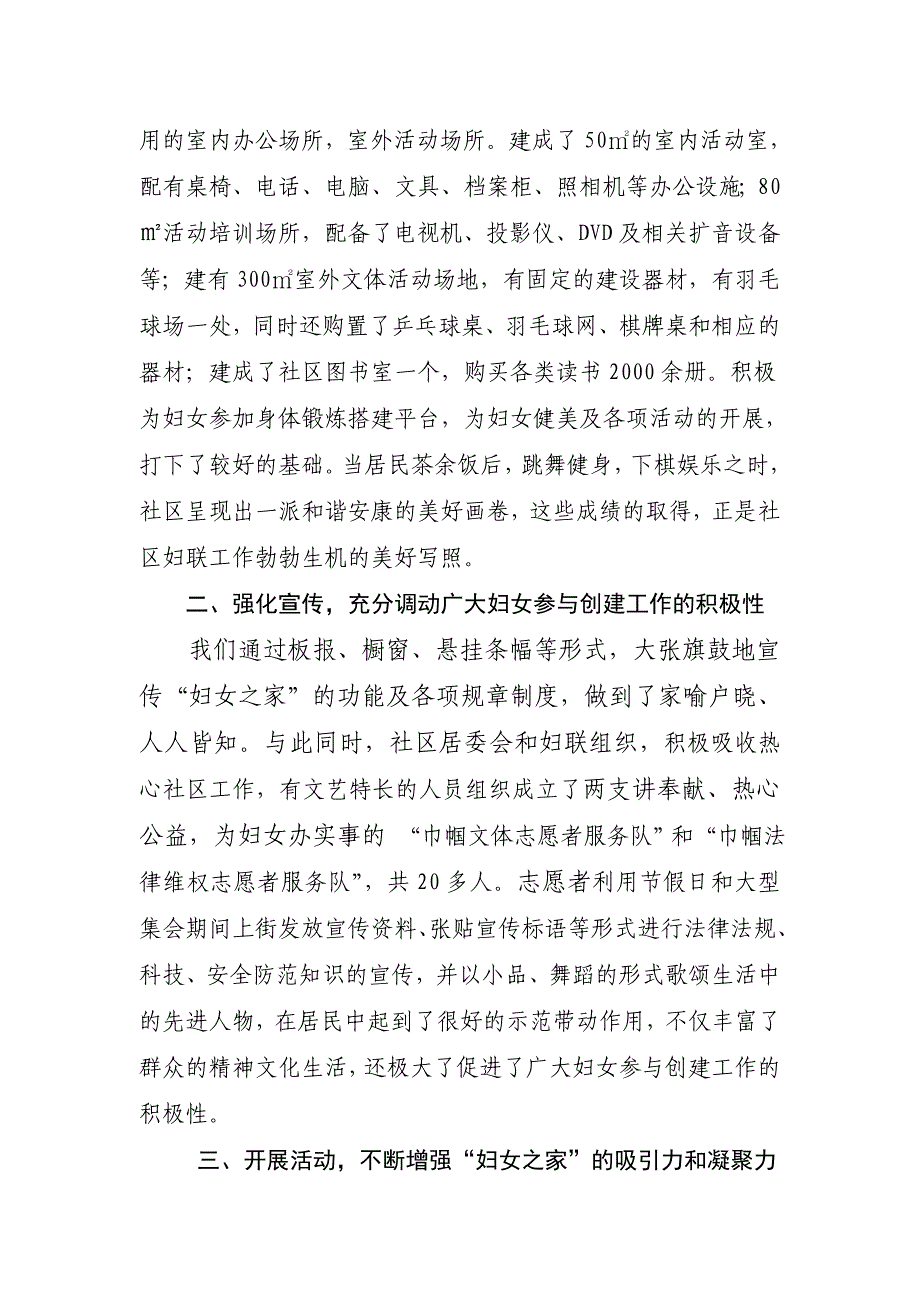 用的室内办公场所，室外活动场所。建成了 50㎡的室内活动室，
配有桌椅、电话、电脑、文具、档案柜、照相机等办公设施；80
㎡活动培训场所，配备了电视机、投影仪、DVD 及相关扩音设备
等；建有 300㎡室外文体活动场地，有固定的建设器材，有羽毛
球场一处，同时还购置了乒乓球桌、羽毛球网、棋牌桌和相应的
器材；建成了社区图书室一个，购买各类读书 2000 余册。积极
为妇女参加身体锻炼搭建平台，为妇女健美及各项活动的开展，
打下了较好的基础。当居民茶余饭后，跳舞健身，下棋娱乐之时，
社区呈现出一派和谐安康的美好画卷，这些成绩的取得，正是社
区妇联工作勃勃生机的美好写照。
二、强化宣传，充分调动广大妇女参与创建工作的积极性
我们通过板报、橱窗、悬挂条幅等形式，大张旗鼓地宣
传“妇女之家”的功能及各项规章制度，做到了家喻户晓、
人人皆知。与此同时，社区居委会和妇联组织，积极吸收热
心社区工作，有文艺特长的人员组织成立了两支讲奉献、热心
公益，为妇女办实事的 “巾帼文体志愿者服务队”和“巾帼法
律维权志愿者服务队”，共 20 多人。志愿者利用节假日和大型
集会期间上街发放宣传资料、张贴宣传标语等形式进行法律法规、
科技、安全防范知识的宣传，并以小品、舞蹈的形式歌颂生活中
的先进人物，在居民中起到了很好的示范带动作用，不仅丰富了
群众的精神文化生活，还极大了促进了广大妇女参与创建工作的
积极性。
三、开展活动，不断增强“妇女之家”的吸引力和凝聚力